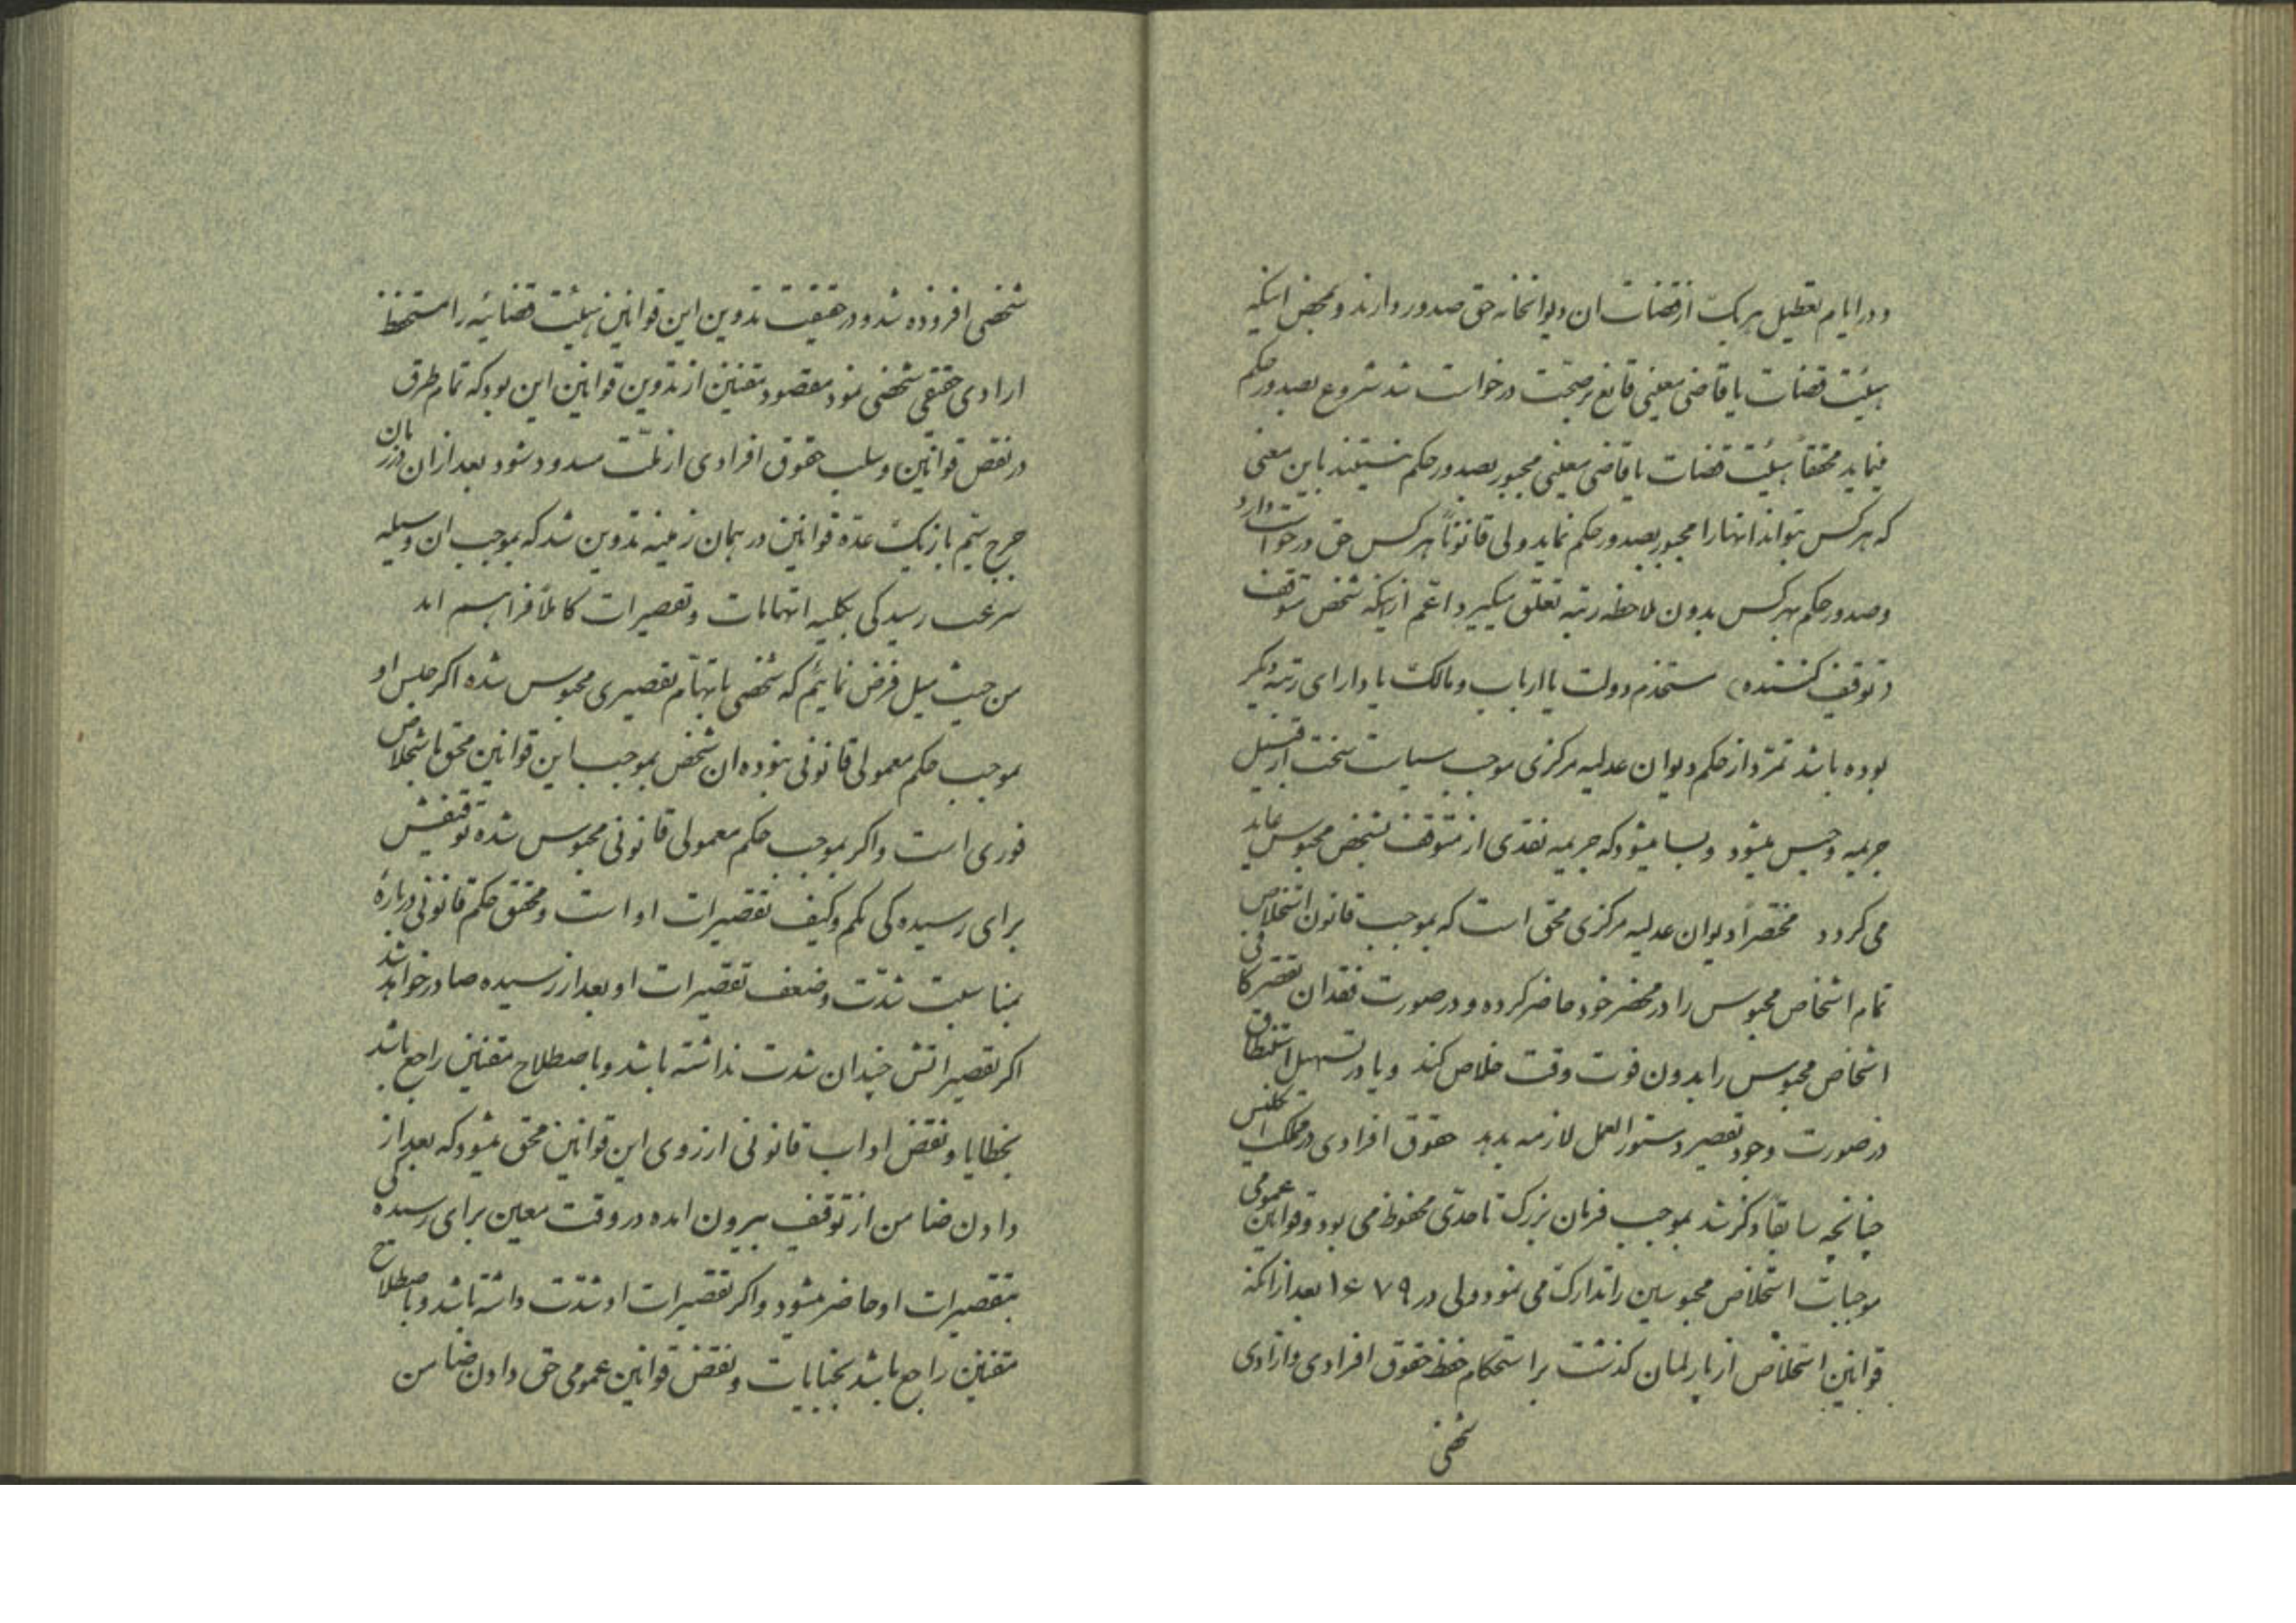 و در ایام تعطیل هر یک از قضات ان دیوانخانه حق صدور دارند و بمحض اینکه
هیئت قضات یا قاضی معینی قانع بر صحت درخواست شد شروع بصدور حکم
مینماید محققاً هیئت قضات یا قاضی معینی مجبور بصدور حکم نیستند باین معنی
که هر کس بتواند انها را مجبور بصدور حکم نماید ولی قانوناً هر کس حق درخواست دارد
و صدور حکم بهر کس بدون ملاحظه رتبه تعلق میگیرد اعم ازینکه شخص متوقف
(توقیف کننده) مستخدم دولت یا ارباب و مالک یا دارای رتبه دیگر
بوده باشد تمرد از حکم دیوان عدلیه مرکزی موجب سیاست سخت از قبیل
جریمه و حبس میشود و بسا میشود که جریمه نقدی از متوقف بشخص محبوس عاید
می کردد مختصراً دیوان عدلیه مرکزی محق است که بموجب قانون استخلاص
تمام اشخاص محبوس را در محضر خود حاضر کرده و در صورت فقدان تقصیر کافی
اشخاص محبوس را بدون فوت وقت خلاص کند و یا در تسهیل استنطاق
در صورت وجود تقصیر دستور العمل لازمه بدهد حقوق افرادی در مملکت انگلیس
چنانچه سابقاً ذکر شد بموجب فرمان بزرک تا حدی محفوظ می بود و قوانین عمومی
موجبات استخلاص محبوسین را تدارک می نمود ولی در ۱۶۷۹ بعد از انکه
قوانین استخلاص از پارلمان کذشت بر استحکام حفظ حقوق افرادی و ازادی
شخصی
شخصی افزوده شد و در حقیقت تدوین این قوانین هیئت قضائیه را مستحفظ
ازادی حقیقی شخصی نمود مقصود مقننین از تدوین قوانین این بود که تمام طرق
در نقض قوانین و سلب حقوق افرادی از ملت مسدود شود بعد از ان در زمان
جرج سیم باز یک عده قوانین در همان زمینه تدوین شد که بموجب ان وسیله
سرعت رسیدکی بکلیه اتهامات و تقصیرات کاملاً فراهم امد
من حیث مثل فرض نمائیم که شخصی باتهام تقصیری محبوس شده اکر حبس او
بموجب حکم معمولی قانونی نبوده ان شخص بموجب این قوانین محق باستخلاص
فوری است و اکر بموجب حکم معمولی قانونی محبوس شده توقیفش
برای رسیده کی بکم و کیف تقصیرات او است و محقق حکم قانونی دربارهٔ
بمناسبت شدت و ضعف تقصیرات او بعد از رسیده صادر خواهد شد
اکر تقصیراتش چندان شدت نداشته باشد و باصطلاح مقننین راجع باشد
بخطایا و نقض اداب قانونی ازروی این قوانین محق میشود که بعد از
دادن ضامن از توقیف بیرون امده در وقت معین برای رسیده کی
بتقصیرات او حاضر میشود و اکر تقصیرات او شدت داشته باشد و باصطلاح
مقننین راجع باشد بخیانات و نقض قوانین عمومی حق دادن ضامن